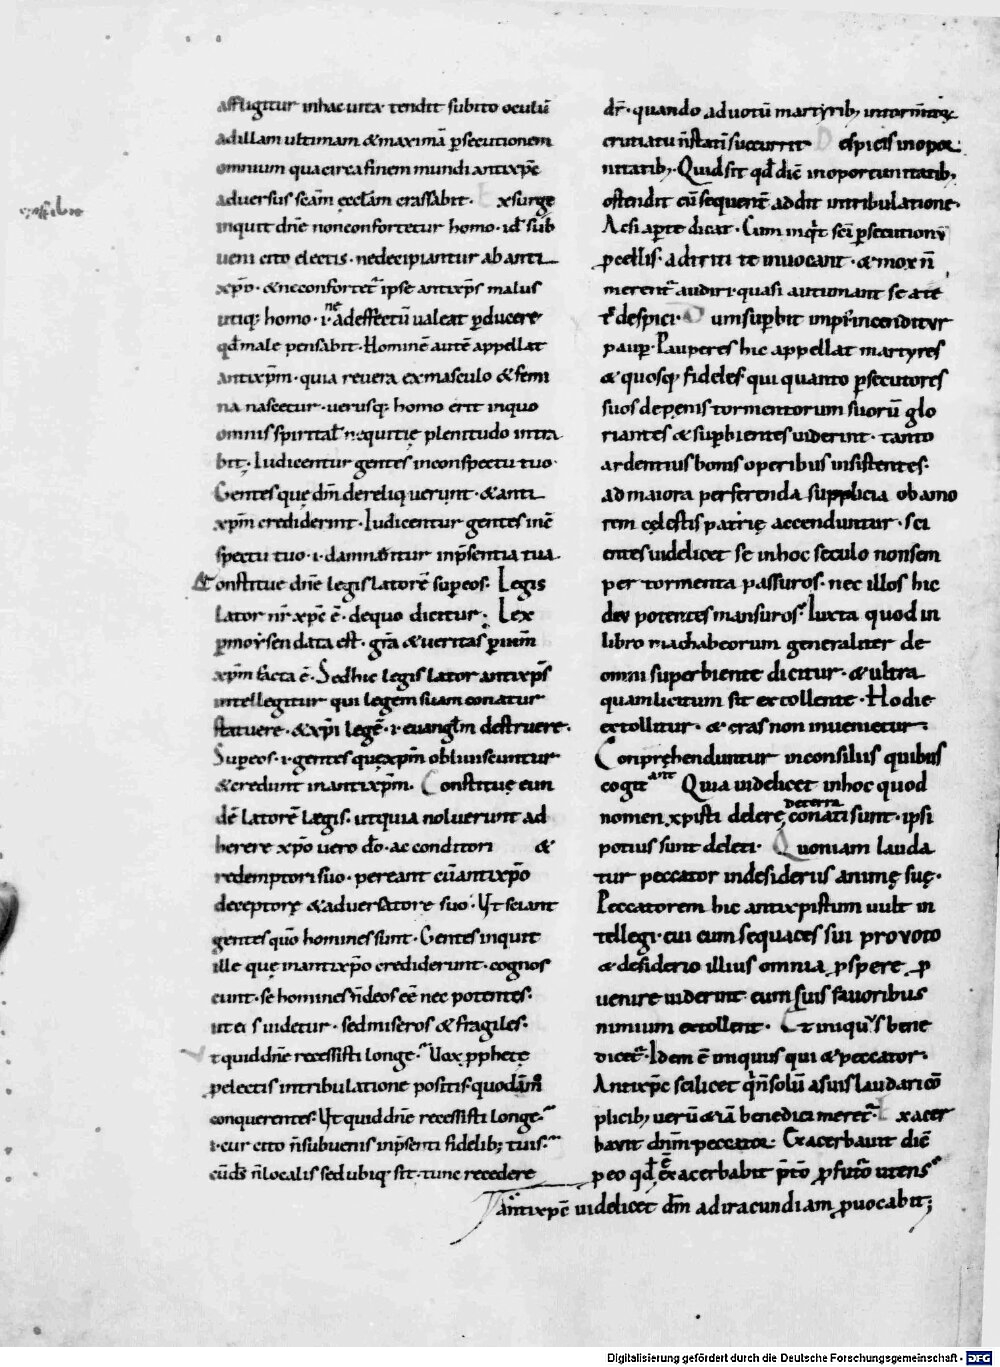 affligitur inhac uita· tendit subito oculū
ad illam ultimam & maximā p̱secutionem
omnium qua circa finem mundi antixp̄c
aduersus sc̄am eccl̄am crassabit. Exsurge
inquit dn̄e non confortetur homo· id ē sub
ueni cito electis· ne decipiantur ab anti
xp̄o· & ne confortet̄ ipse antixp̄s malus
utiq; homo· i· ne ad effectū ualeat p̱ducere
qđ male pensabit· Hominē autē appellat
antixp̄m· quia reuera ex masculo & femi
na nascetur· uerusq; homo erit in quo
omnis spiritał nequitię plenitudo intra
bit· Iudicentur gentes in conspectu tuo·
Gentes quę dm̄ dereliquerunt· & anti
xp̄m crediderint· Iudicentur gentes in c̄
spectu tuo· i· damnentur in p̄sentia tua·
Constitue dn̄e legislatorē sup̱ eos· Legis
lator nr̄ xp̄c ē· de quo dicitur· Lex
p̱ moysen data est· gr̄a & ueritas p̱ ihm̄
xp̄m facta ē· Sed hic legislator antixp̄s
intellegitur qui legem suam conatur
statuere· & xp̄i legē· i· euangl̄m destruere·
Sup̱ eos· i· gentes quę xp̄m obliuiscuntur
& credunt in antixp̄m. Constituę eun
dē latorē lęgis· ut quia noluerunt ad
herere xp̄o uero dō· ac conditori &
redemptori suo· pereant cū antixp̄o
deceptorę & aduersatore suo· Ut sciant
gentes quō homines sunt· Gentes inquit
ille quę in antixp̄o crediderunt· cognos
cunt· se homines n̄ deos ēē nec potentes·
ut eis uidetur· sed miseros & fragiles·
Ut quid dn̄e recessisti longe· Uox p̱phetę
p̱ electis in tribulatione positis· quodāmō
conquerentes· Ut quid dn̄e recessisti longe·
i· cur cito n̄ subuenis in p̄senti fidelib; tuis·
cū dś n̄ localis sed ubiq; sit· tunc recedere
dr̄· quando ad uotū martyrib; in tormītoꝝ
cruciatu n̄ statī succurrit· Despicis in opor
tunitatib;· Quid sit qđ dic̄ in oportunitatib;
ostendit cū sequent̄ addit in tribulatione·
Ac si ap̱te dicat· Cum inq̇t sc̄i p̱secutionū
p̱cellis· adtriti te inuocant· & mox n̄
merent̄ audiri· quasi autumant se a te
despici· Dum sup̱bit impi' incenditur
paup̱· Pauperes hic appellat martyres
& quosq; fideles qui quanto p̱secutores
suos de penis tormentorum suorū glo
riantes & sup̱bientes uiderint· tanto
ardentius bonis operibus insistentes·
ad maiora perferenda supplicia ob amo
rem cęlestis patrię accenduntur· sci
entes uidelicet se in hoc seculo non sem
per tormenta passuros· nec illos hic
diu potentes mansuros· Iuxta quod in
libro machabeorum generaliter de
omni superbiente dicitur· & ultra
quam licitum sit extollente· Hodie
extollitur· & cras non inuenietur·
Conprehenduntur in consiliis quibus
cogitant Quia uidelicet in hoc quod
nomen xpisti delerę de terra conati sunt· ipsi
potius sunt deleti· Quoniam lauda
tur peccator in desideriis animę suę·
Peccatorem hic antixpistum uult in
tellegi· cui cum sequaces sui pro uoto
& desiderio illius omnia p̱spere p̱
uenire uiderint cum suis fauoribus
nimium extollent· Et iniquus bene
dicet̄· Idem ē iniquus qui & peccator·
Antixp̄c scilicet q̇ n̄ solū a suis laudari cō
plicib; uerū & iā benedici meret̄· Exacer
bauit dn̄m peccator· Exacerbauit dic̄
p̱ eo qđ ē exacerbabit p̄t̄o p̱ futuro utens
antixp̄c uidelicet dm̄ ad iracundiam p̱uocabit;